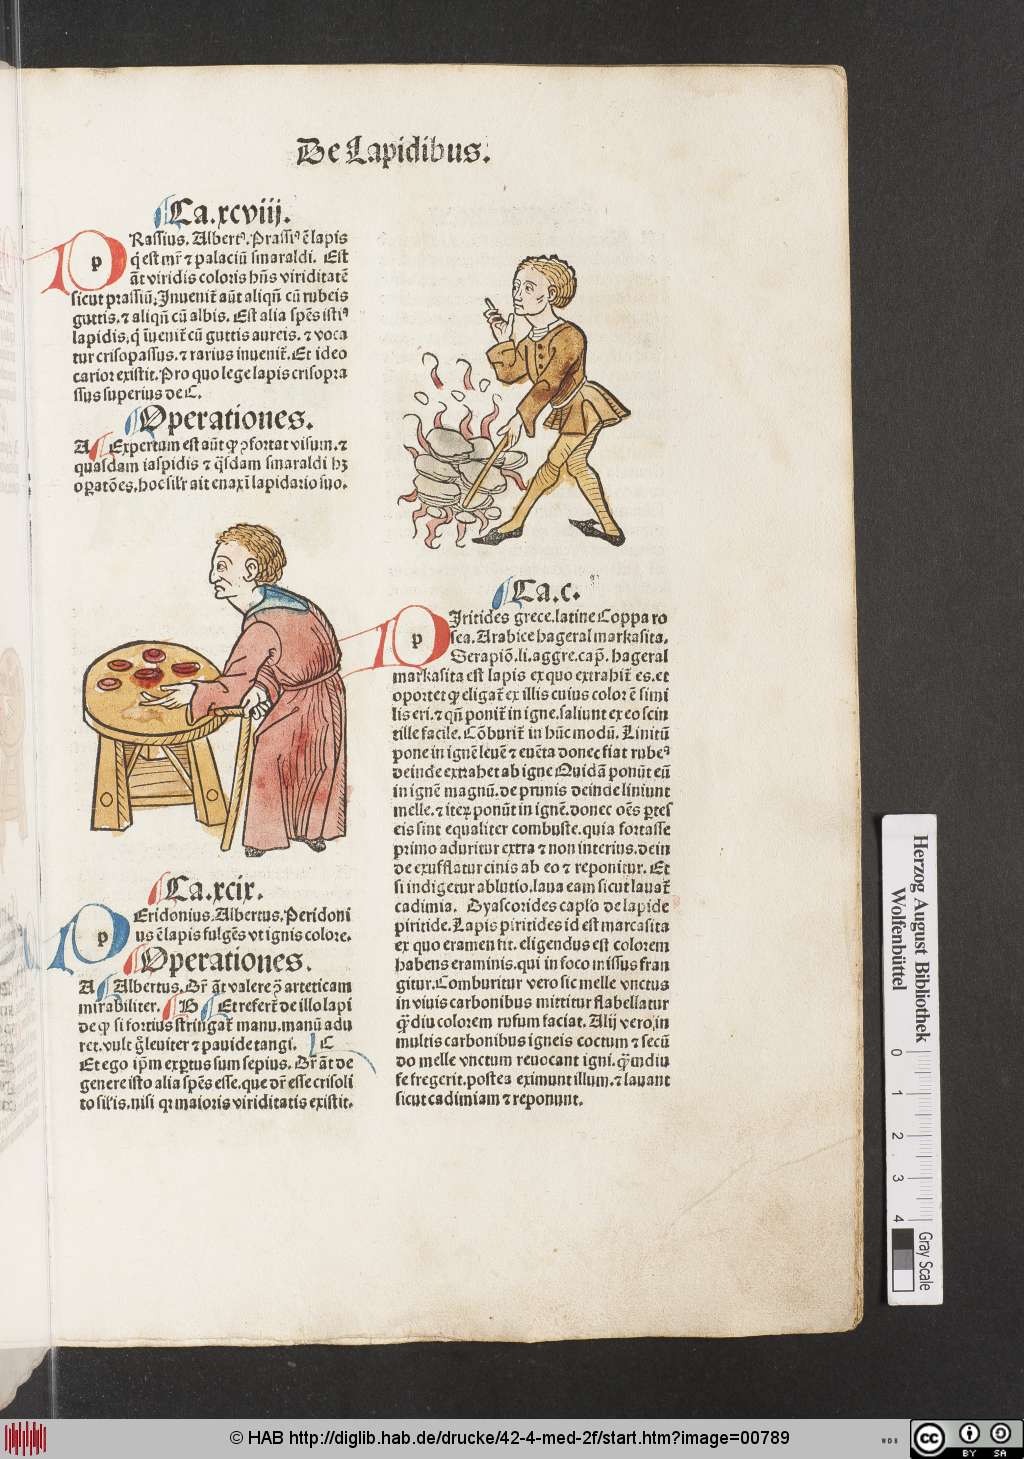 De Lapidibus.
¶Ca.xcviij.
PRassius. Albertꝰ. Prassiꝰ ē lapis
q̇ est mr̄ ⁊ palaciū smaraldi. Est
āt viridis coloris hn̄s viriditatē
sicut prassiū. Inuenit̄ aūt aliqn̄ cū rubeis
guttis. ⁊ aliqn̄ cū albis. Est alia spēs istiꝰ
lapidis, q̇ īuenit̄ cū guttis aureis. ⁊ voca
tur crisopassus. ⁊ rarius inuenit̄. Et ideo
carior existit. Pro quo lege lapis crisopra
ssus superius de C.
¶Operationes.
A ¶Expertum est aūt ꝙ ꝯfortat visum. ⁊
quasdam iaspidis ⁊ q̄sdam smaraldi hꝫ
oꝑatōes. hoc silr̄ ait enaxī lapidario suo.
¶Ca.xcix.
PEridonius. Albertus. Peridoni
us ē lapis fulgēs vt ignis colore.
¶Operationes.
A ¶Albertus. Dr̄ āt valere ꝯ̄ arteticam
mirabiliter. ¶B ¶Et refert̄ de illo lapi
de ꝙ si fortius stringat̄ manu. manū adu
ret. vult g̊ leuiter ⁊ pauide tangi. ¶C
Et ego ip̄m exptus sum sepius. Dr̄ āt de
genere isto alia spēs esse. que dr̄ esse crisoli
to sil'is. nisi qꝛ maioris viriditatis existit.
¶Ca.c.
PIritides grece. latine Coppa ro
sea. Arabice hageral markasita.
Serapiō. li. aggre. cap̄. hageral
markasita est lapis ex quo extrahit̄ es. et
oportet ꝙ eligat̄ ex illis cuius color ē simi
lis eri. ⁊ qn̄ ponit̄ in igne. saliunt ex eo scin
tille facile. Cōburit̄ in hūc modū. Linitū
pone in ignē leuē ⁊ euēta donec fiat rubeꝰ
deinde extrahet ab igne Quidā ponūt eū
in ignē magnū. de prunis deinde liniunt
melle. ⁊ iteꝝ ponūt in ignē. donec oēs ꝑtes
eis sint equaliter combuste. quia fortasse
primo aduritur extra ⁊ non interius. dein
de exufflatur cinis ab eo ⁊ reponitur. Et
si indigetur ablutio. laua eam sicut lauat̄
cadimia. Dyascorides caplo de lapide
piritide. Lapis piritides id est marcasita
ex quo eramen fit. eligendus est colorem
habens eraminis. qui in foco missus fran
gitur. Comburitur vero sic melle vnctus
in viuis carbonibus mittitur flabellatur
q̄diu colorem rufum faciat. Alij vero, in
multis carbonibus igneis coctum ⁊ secū
do melle vnctum reuocant igni. q̄mdiu
fe fregerit. postea eximunt illum. ⁊ lauant
sicut cadimiam ⁊ reponunt.
Herzog August Bibliothek
Wolfenbüttel
0 1 2 3 4
Gray Scale
© HAB http://diglib.hab.de/drucke/42-4-med-2f/start.htm?image=00789
WDB
cc BY SA